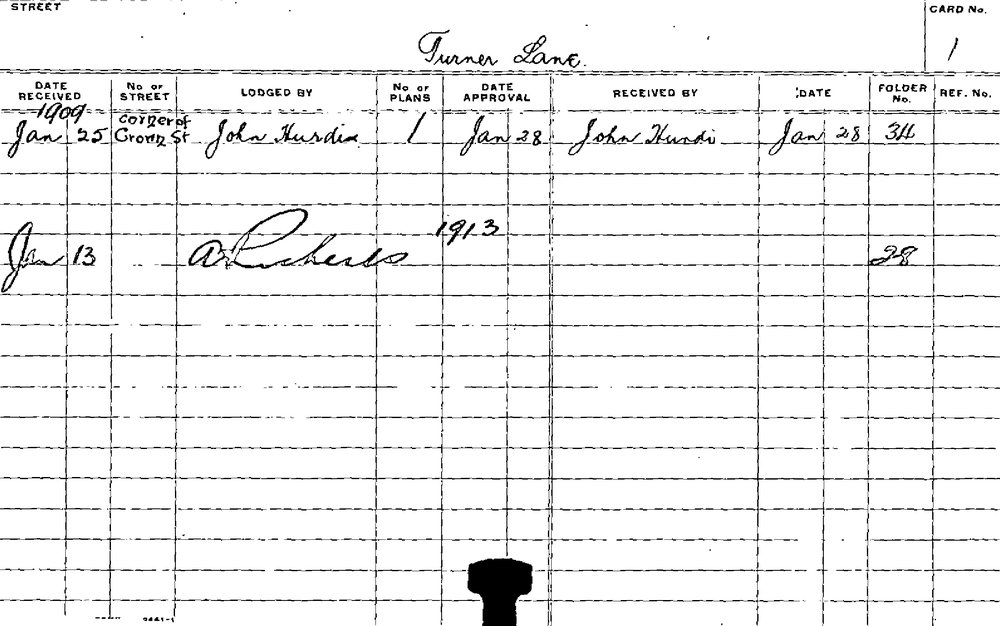 STREET
CARD No.
Turner Lane.
1
DATE RECEIVED No OF STREET LODGED BY No OF PLANS DATE APPROVAL RECEIVED BY DATE FOLDER No. REF. No.
1909 corner of
Jan 25 Crown St John 1 Jan 28 John Jan 28 34
1913
Jan 13 28